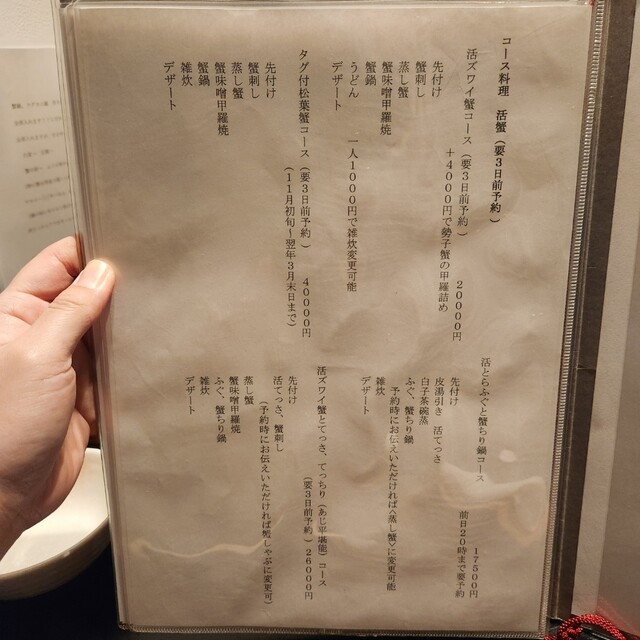 コース料理　活蟹（要３日前予約）
活ズワイ蟹コース（要３日前予約）　２００００円
＋４０００円で勢子蟹の甲羅詰め
先付け
蟹刺し
蒸し蟹
蟹味噌甲羅焼
蟹鍋
うどん　一人１０００円で雑炊変更可能
デザート
タグ付松葉蟹コース（要３日前予約）　４００００円
（１１月初旬～翌年３月末日まで）
先付け
蟹刺し
蒸し蟹
蟹味噌甲羅焼
蟹鍋
雑炊
デザート
活とらふぐと蟹ちり鍋コース　１７５００円
前日２０時まで要予約
先付け
皮湯引き　活てっさ
白子茶碗蒸
ふぐ、蟹ちり鍋
予約時にお伝えいただければ〈蒸し蟹〉に変更可能
雑炊
デザート
活ズワイ蟹とてっさ、てっちり（あじ平堪能）コース
（要３日前予約）２６０００円
先付け
活てっさ、蟹刺し
（予約時にお伝えいただければ蟹しゃぶに変更可）
蒸し蟹
蟹味噌甲羅焼
ふぐ、蟹ちり鍋
雑炊
デザート